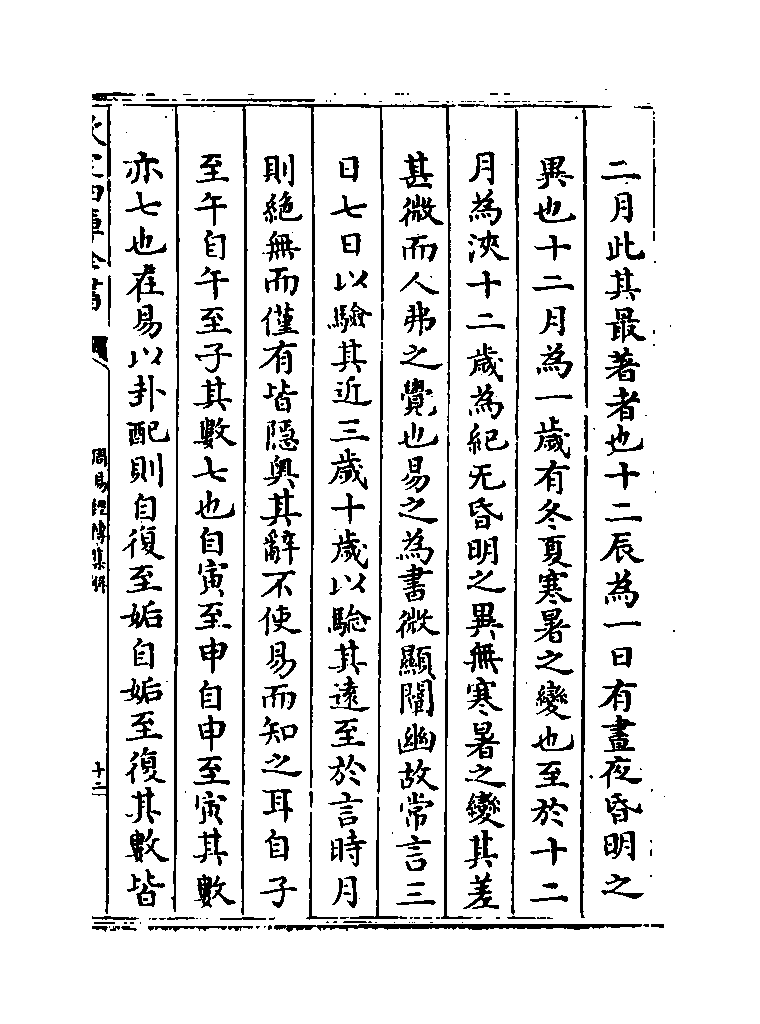 二月此其最著者也十二辰為一日有晝夜昏明之
異也十二月為一歲有冬夏寒暑之變也至於十二
月為浹十二歲為紀无昏明之異無寒暑之變其差
甚微而人弗之覺也易之為書微顯闡幽故常言三
日七日以驗其近三歲十歲以驗其遠至於言時月
則絶無而僅有皆隱奥其辭不使易而知之耳自子
至午自午至子其數七也自寅至申自申至寅其數
亦七也在易以卦配則自復至姤自姤至復其數皆
欽定四庫全書
周易經傳集解
十二